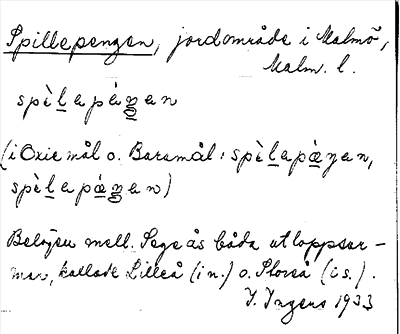 Spillepengen, jordområde i Malmö,
Malm. l.
spèlapáŋan
(i Oxie mål o. Baramål: spèlapæŋan,
spèlapáŋan)
Beläget mell. Sege ås båda utloppsar-
mar, kallade Lilleå (i n.) o. Storeå (i s.).
I. Ingers 1933